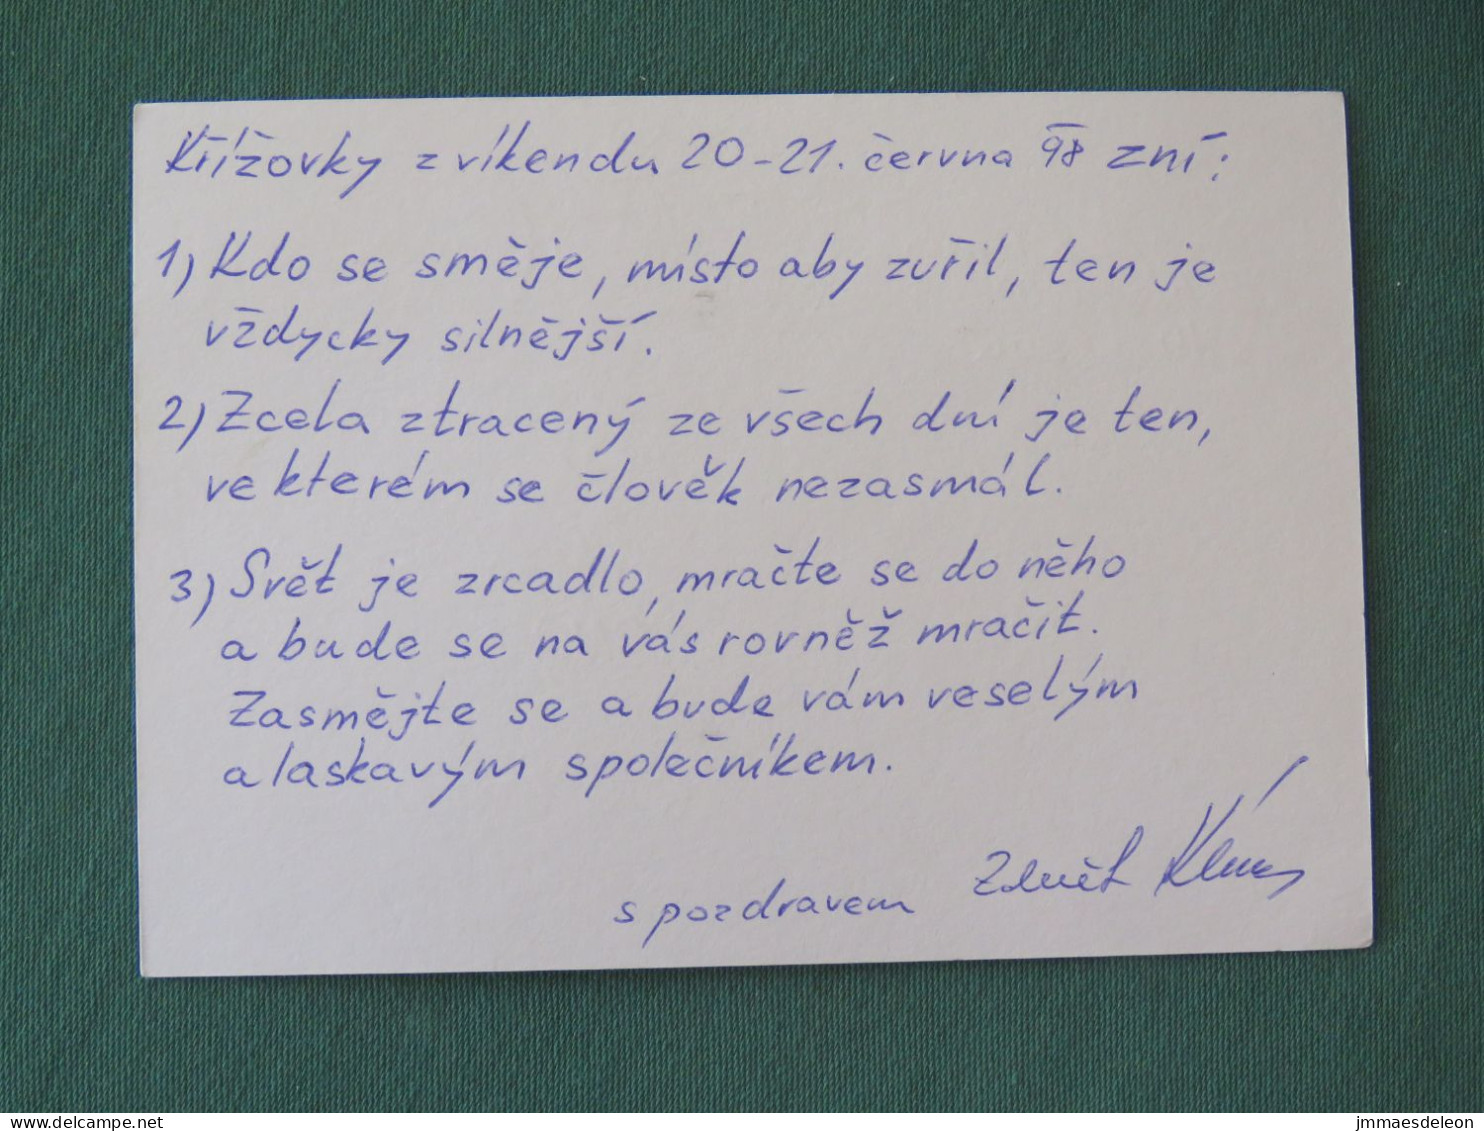 Křížovky z víkendu 20-21. června 98 zní:
1) Kdo se směje, místo aby zuřil, ten je
vždycky silnější.
2) Zcela ztracený ze všech dní je ten,
ve kterém se člověk nezasmál.
3) Svět je zrcadlo, mračte se do něho
a bude se na vás rovněž mračit.
Zasmějte se a bude vám veselým
a laskavým společníkem.
s pozdravem
delcampe.net
jmmaesdeleon